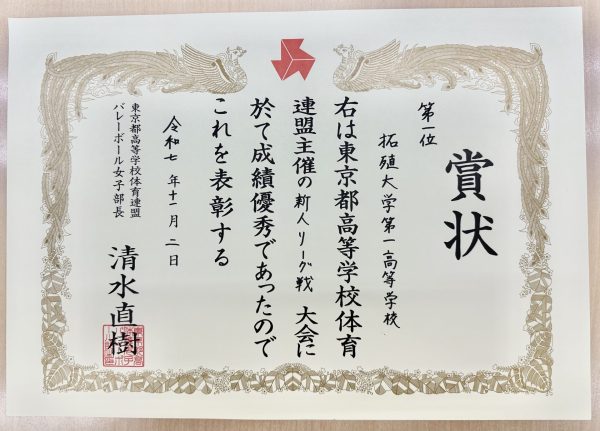 賞状
第一位
拓殖大学第一高等学校
右は東京都高等学校体育
連盟主催の新人リーグ戦大会に
於て成績優秀であったので
これを表彰する
令和七年十一月二日
東京都高等学校体育連盟
バレーボール女子部長
清水直樹